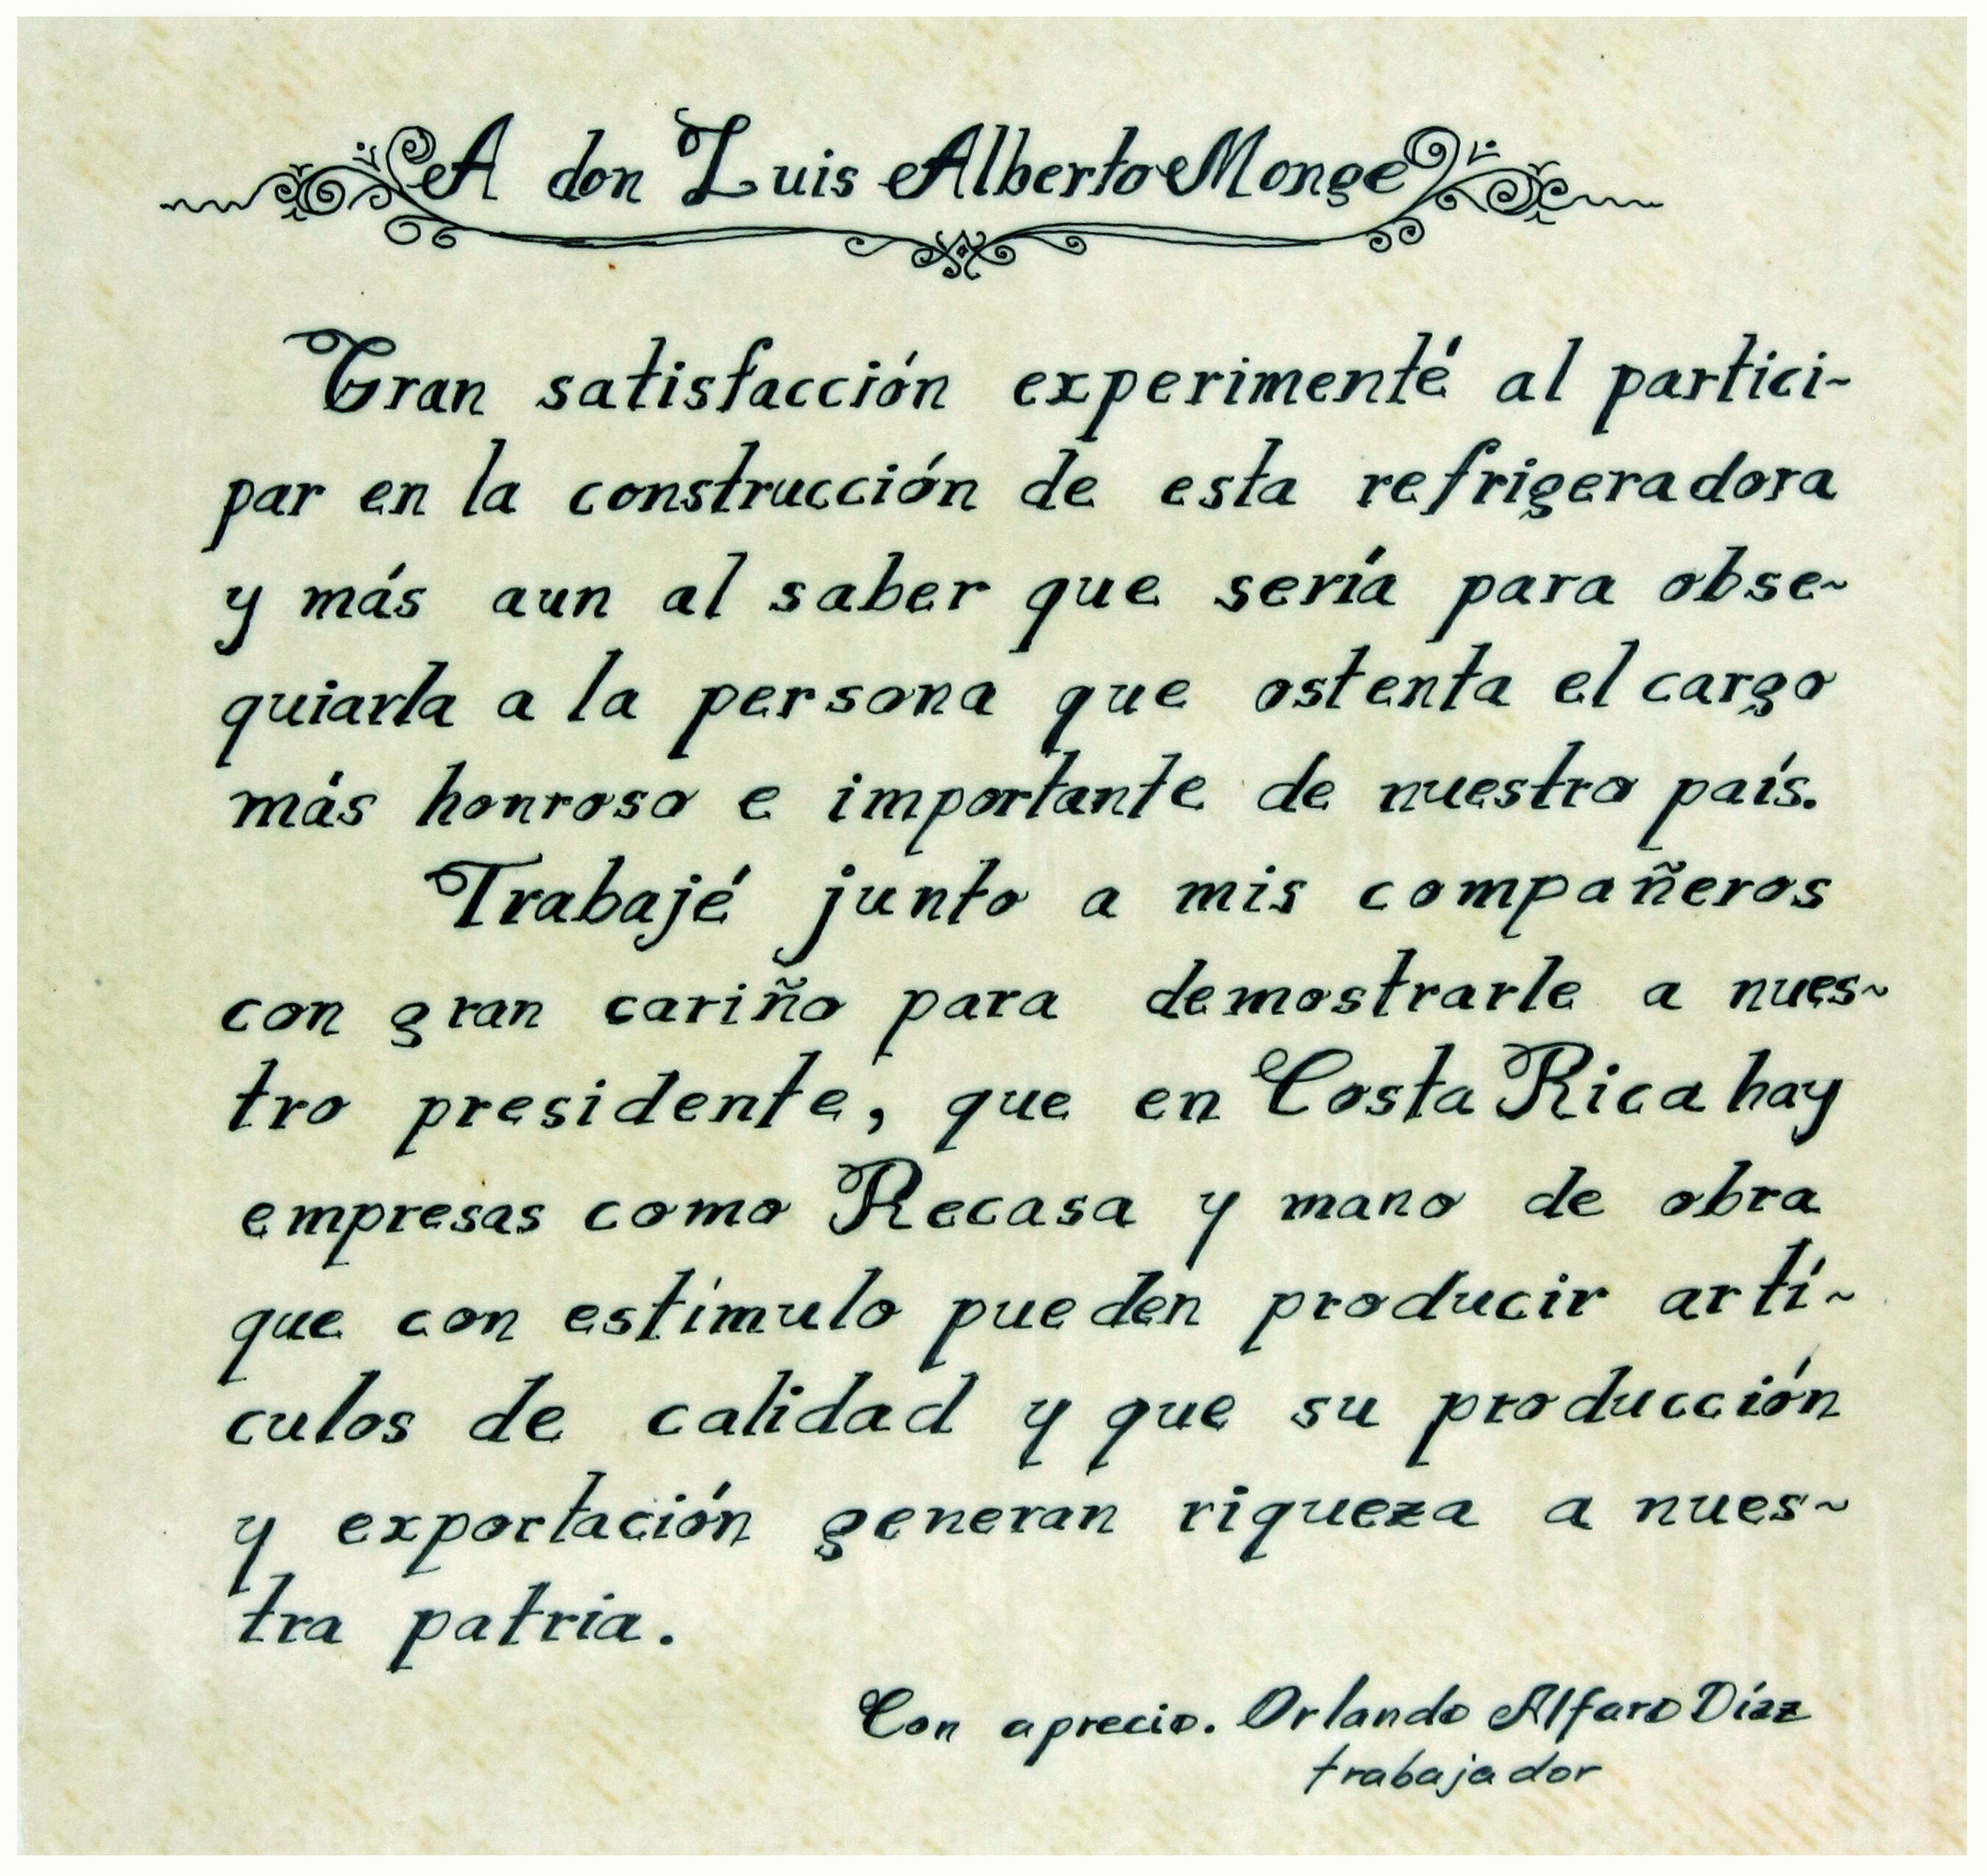 A don Luis Alberto Monge
Gran satisfacción experimenté al partici~
par en la construcción de esta refrigeradora
y más aun al saber que sería para obse~
quiarla a la persona que ostenta el cargo
más honroso e importante de nuestro país.
Trabajé junto a mis compañeros
con gran cariño para demostrarle a nues~
tro presidente, que en Costa Rica hay
empresas como Recasa y mano de obra
que con estímulo pueden producir artí~
culos de calidad y que su producción
y exportación generan riqueza a nues~
tra patria.
Con aprecio. Orlando Alfaro Díaz
trabajador